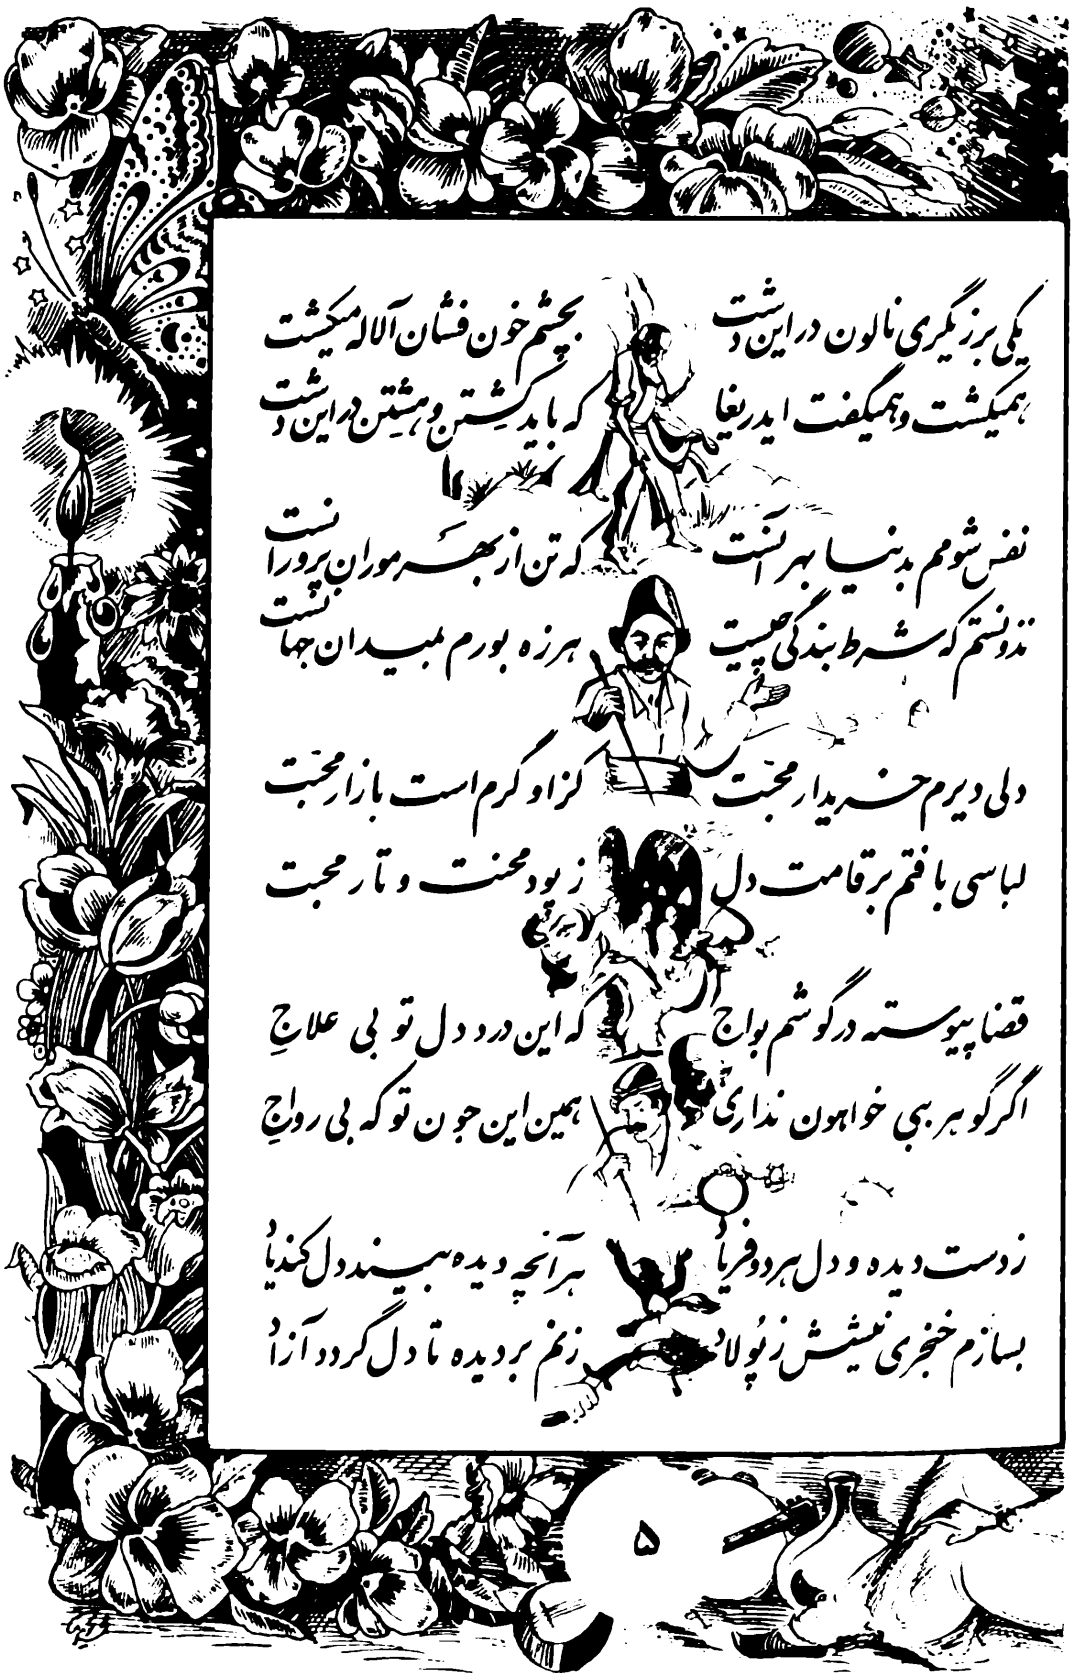 یکی برزیگری نالون در این دشت بچشم خون فشان آلاله میکشت
همیکشت و همیگفت ایدریغا که باید کِشتن و هِشتن در این دشت
نفس شومم بدنیا بهر آنست که تن از بهر موران پرورانست
ندونستم که شرط بندگی چیست هرزه بورم بمیدان جهانست
دلی دیرم خریدار محبّت کز او گرم است بازار محبّت
لباسی بافتم بر قامت دل ز پود محنت و تار محبت
قضا پیوسته در گوشم بواجِ که این درد دل تو بی علاجِ
اگر گوهر ببی خواهون نداری همین این جون تو که بی رواجِ
ز دست دیده و دل هر دو فریاد هر آنچه دیده بیند دل کند یاد
بسازم خنجری نیشش ز پُولاد زنم بر دیده تا دل گردد آزاد
۵